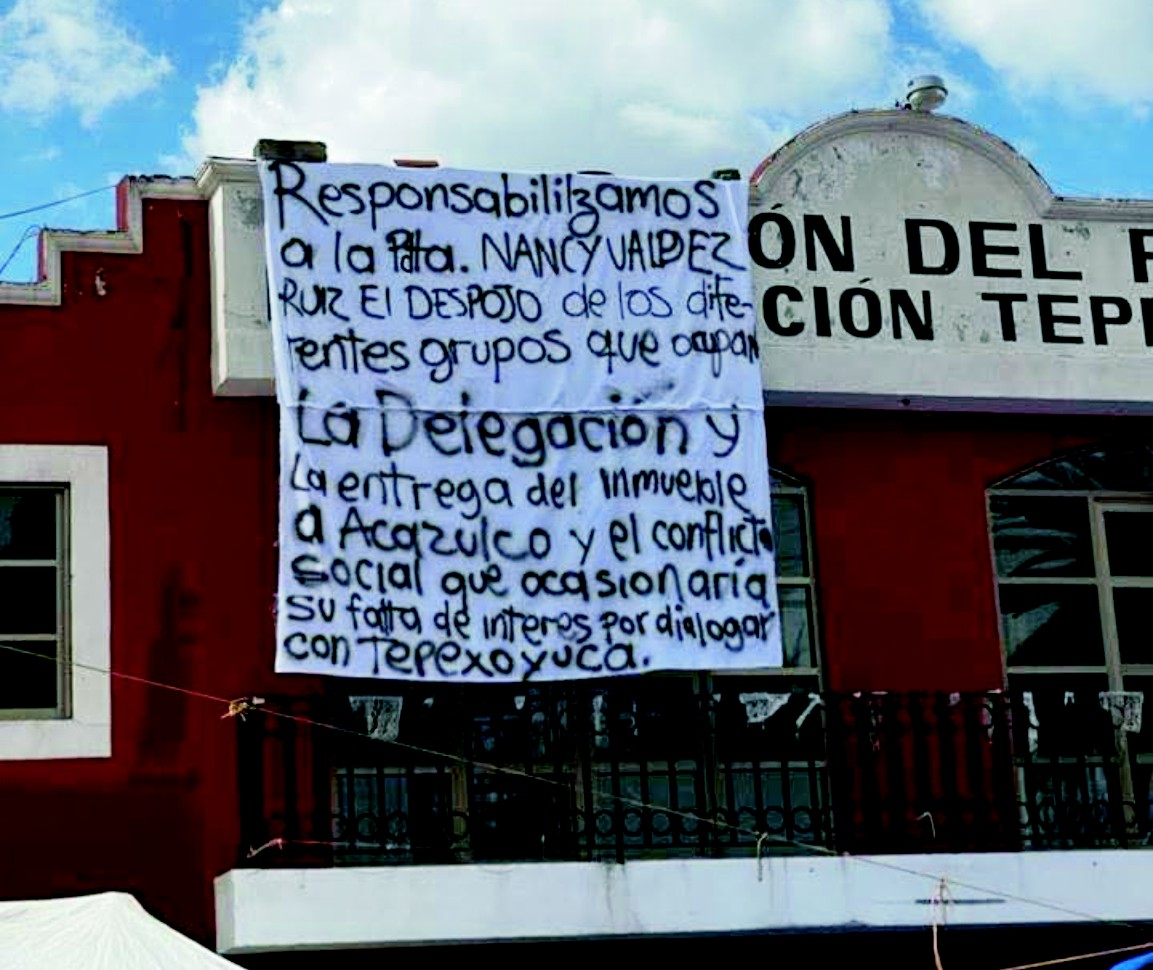 Responsabililzamos
a la Ptta. NANCY VALDEZ
RUIZ El DESPOJO de los dife-
rentes grupos que ocupan
La Delegación y
La entrega del inmueble
a Acazulco y el conflicto
social que ocasionaría
su falta de interes por dialogar
con Tepexoyuca.
ÓN DEL
CIÓN TEP